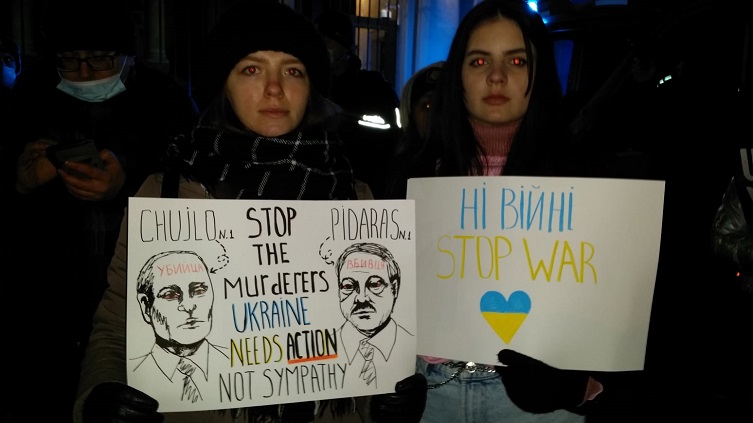 CHUJLO N.1
STOP
THE
MURDERERS
UKRAINE
NEEDS ACTION
NOT SYMPATHY
УБИЙЦА
PIDARAS N.1
ВБИВЦЯ
НІ ВІЙНІ
STOP WAR